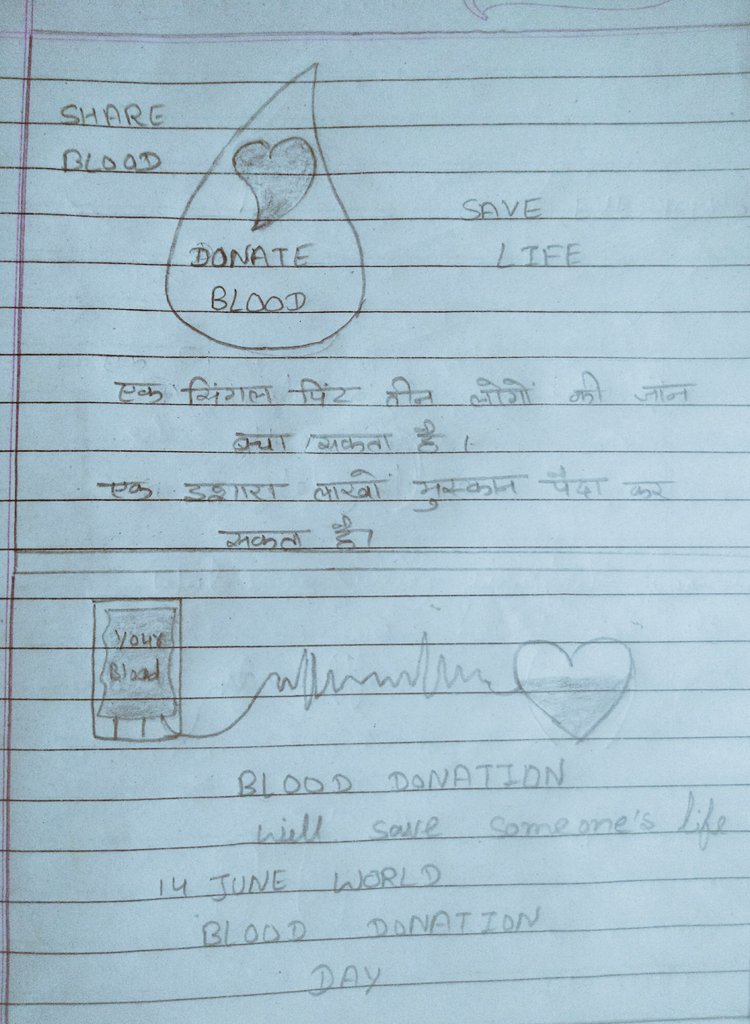 SHARE
BLOOD
SAVE
LIFE
DONATE
BLOOD
एक सिंगल पिंट तीन लोगों की जान
बचा सकता है।
एक इशारा लाखो मुस्कान पैदा कर
सकता है।
Your
Blood
BLOOD DONATION
will save someone's life
14 JUNE WORLD
BLOOD DONATION
DAY